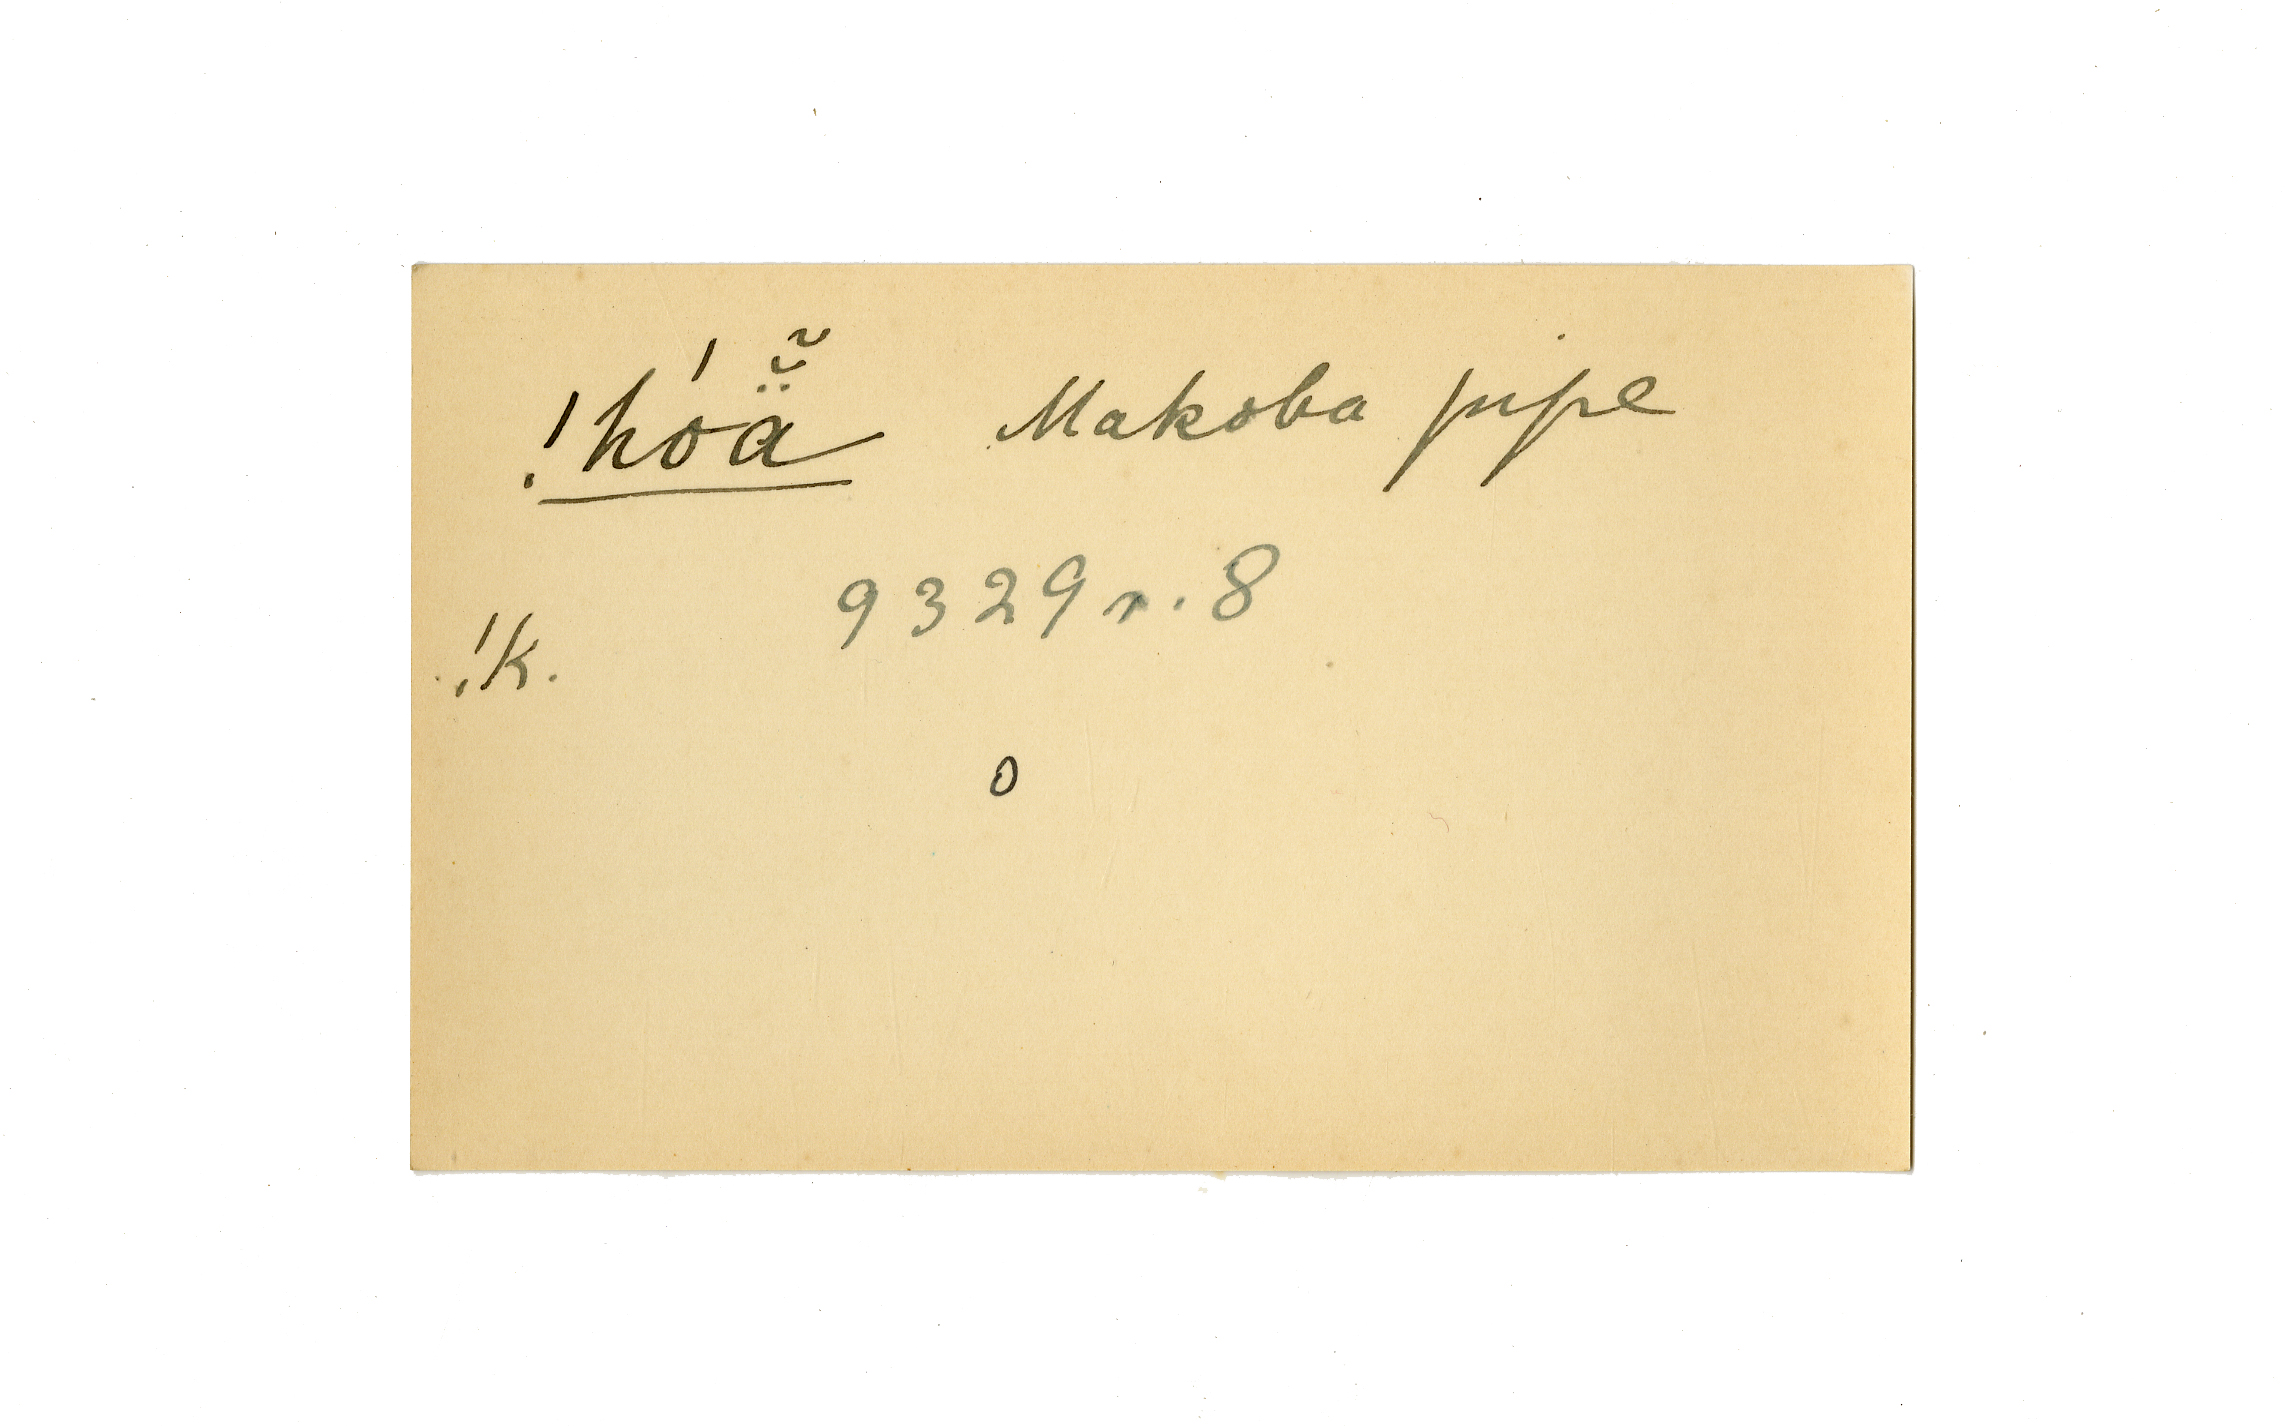 !hóä̆̃ Makoba pipe
9329r. 8
!k.
0